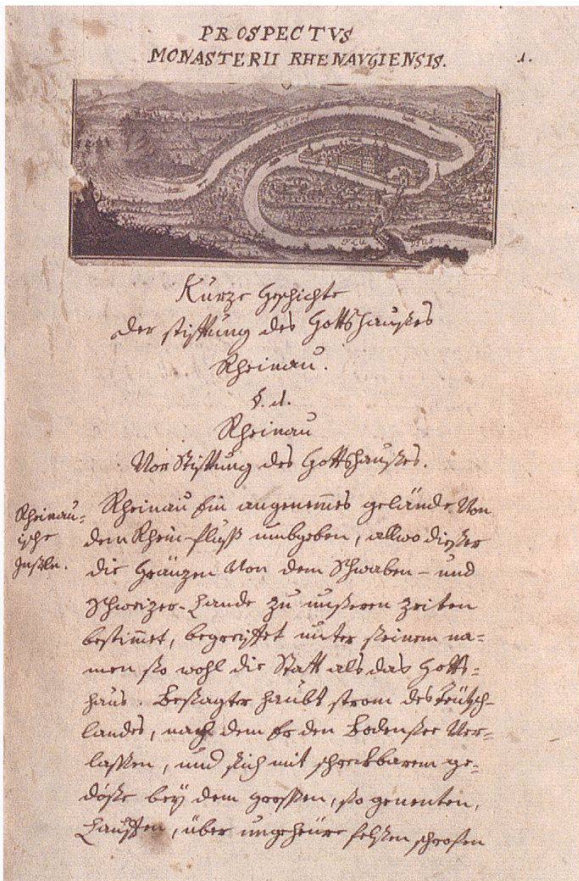 PROSPECTVS
MONASTERII RHENAVGIENSIS.
1.
Kurze Geschichte
der stifftung des Gottshaußes
Rheinau.
§. 1.
Rheinau
Von Stifftung des Gottshaußes.
Rheinau-
ische
Inßeln.
Rheinau ein angenemes gelände Von
dem Rhein-fluß umbgeben, allwo dießer
die Gränzen Von dem Schwaben- und
Schweizer-Lande zu unßeren zeiten
bestimet, begreiffet unter seinem na-
men so wohl die Statt als das Gotts-
haus. Besagter haubt strom des Teütsch-
landes, nach dem Er den Bodensee Ver-
lassen, und sich mit schreckbarem ge-
döße beÿ dem grossen, so genenten,
Lauffen, über ungeheüre felßen schrofen